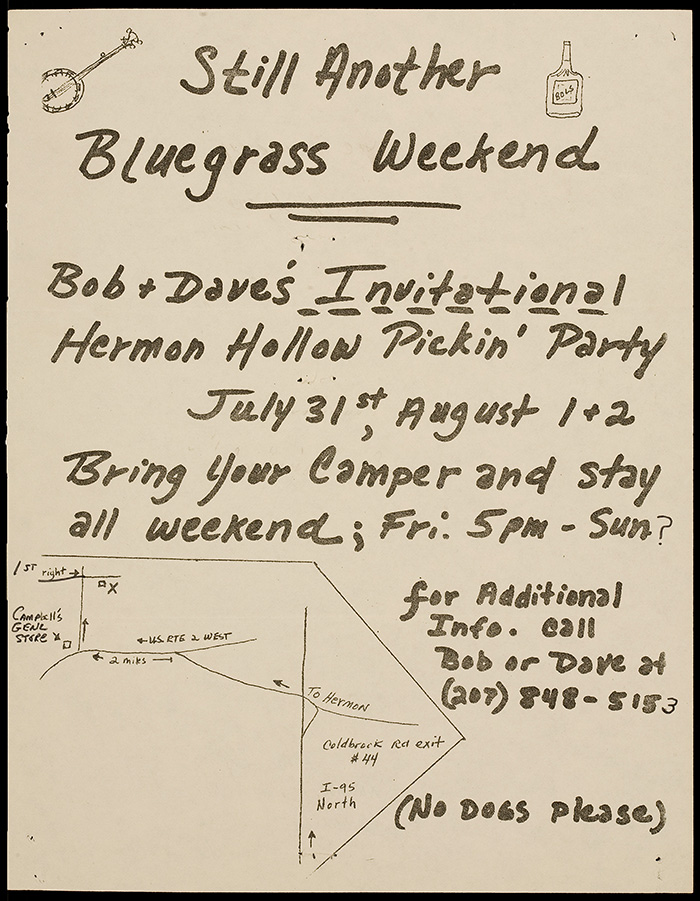 Still Another
BOLS
Bluegrass Weekend
Bob + Dave's Invitational
Hermon Hollow Pickin' Party
July 31st, August 1+2
Bring Your Camper and stay
all weekend; Fri. 5pm - Sun?
1ST right
X
CAMPBELL'S
GENL
STORE
US RTE 2 WEST
2 miles
To Hermon
Coldbrook Rd exit
#44
I-95
North
for Additional
Info. Call
Bob or Dave at
(207) 848-5153
(No DOGS please)